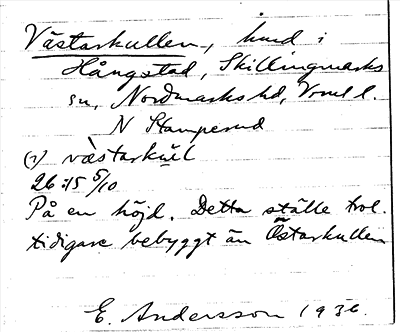 Västarkullen, hmd i
Hångstad, Skillingmarks
sn, Nordmarks hd, Vrml l.
N Stamperud
(1) væ̀starkul
26:15 5/10
På en höjd. Detta ställe trol.
tidigare bebyggt än Östarkullen
E. Andersson 1936.